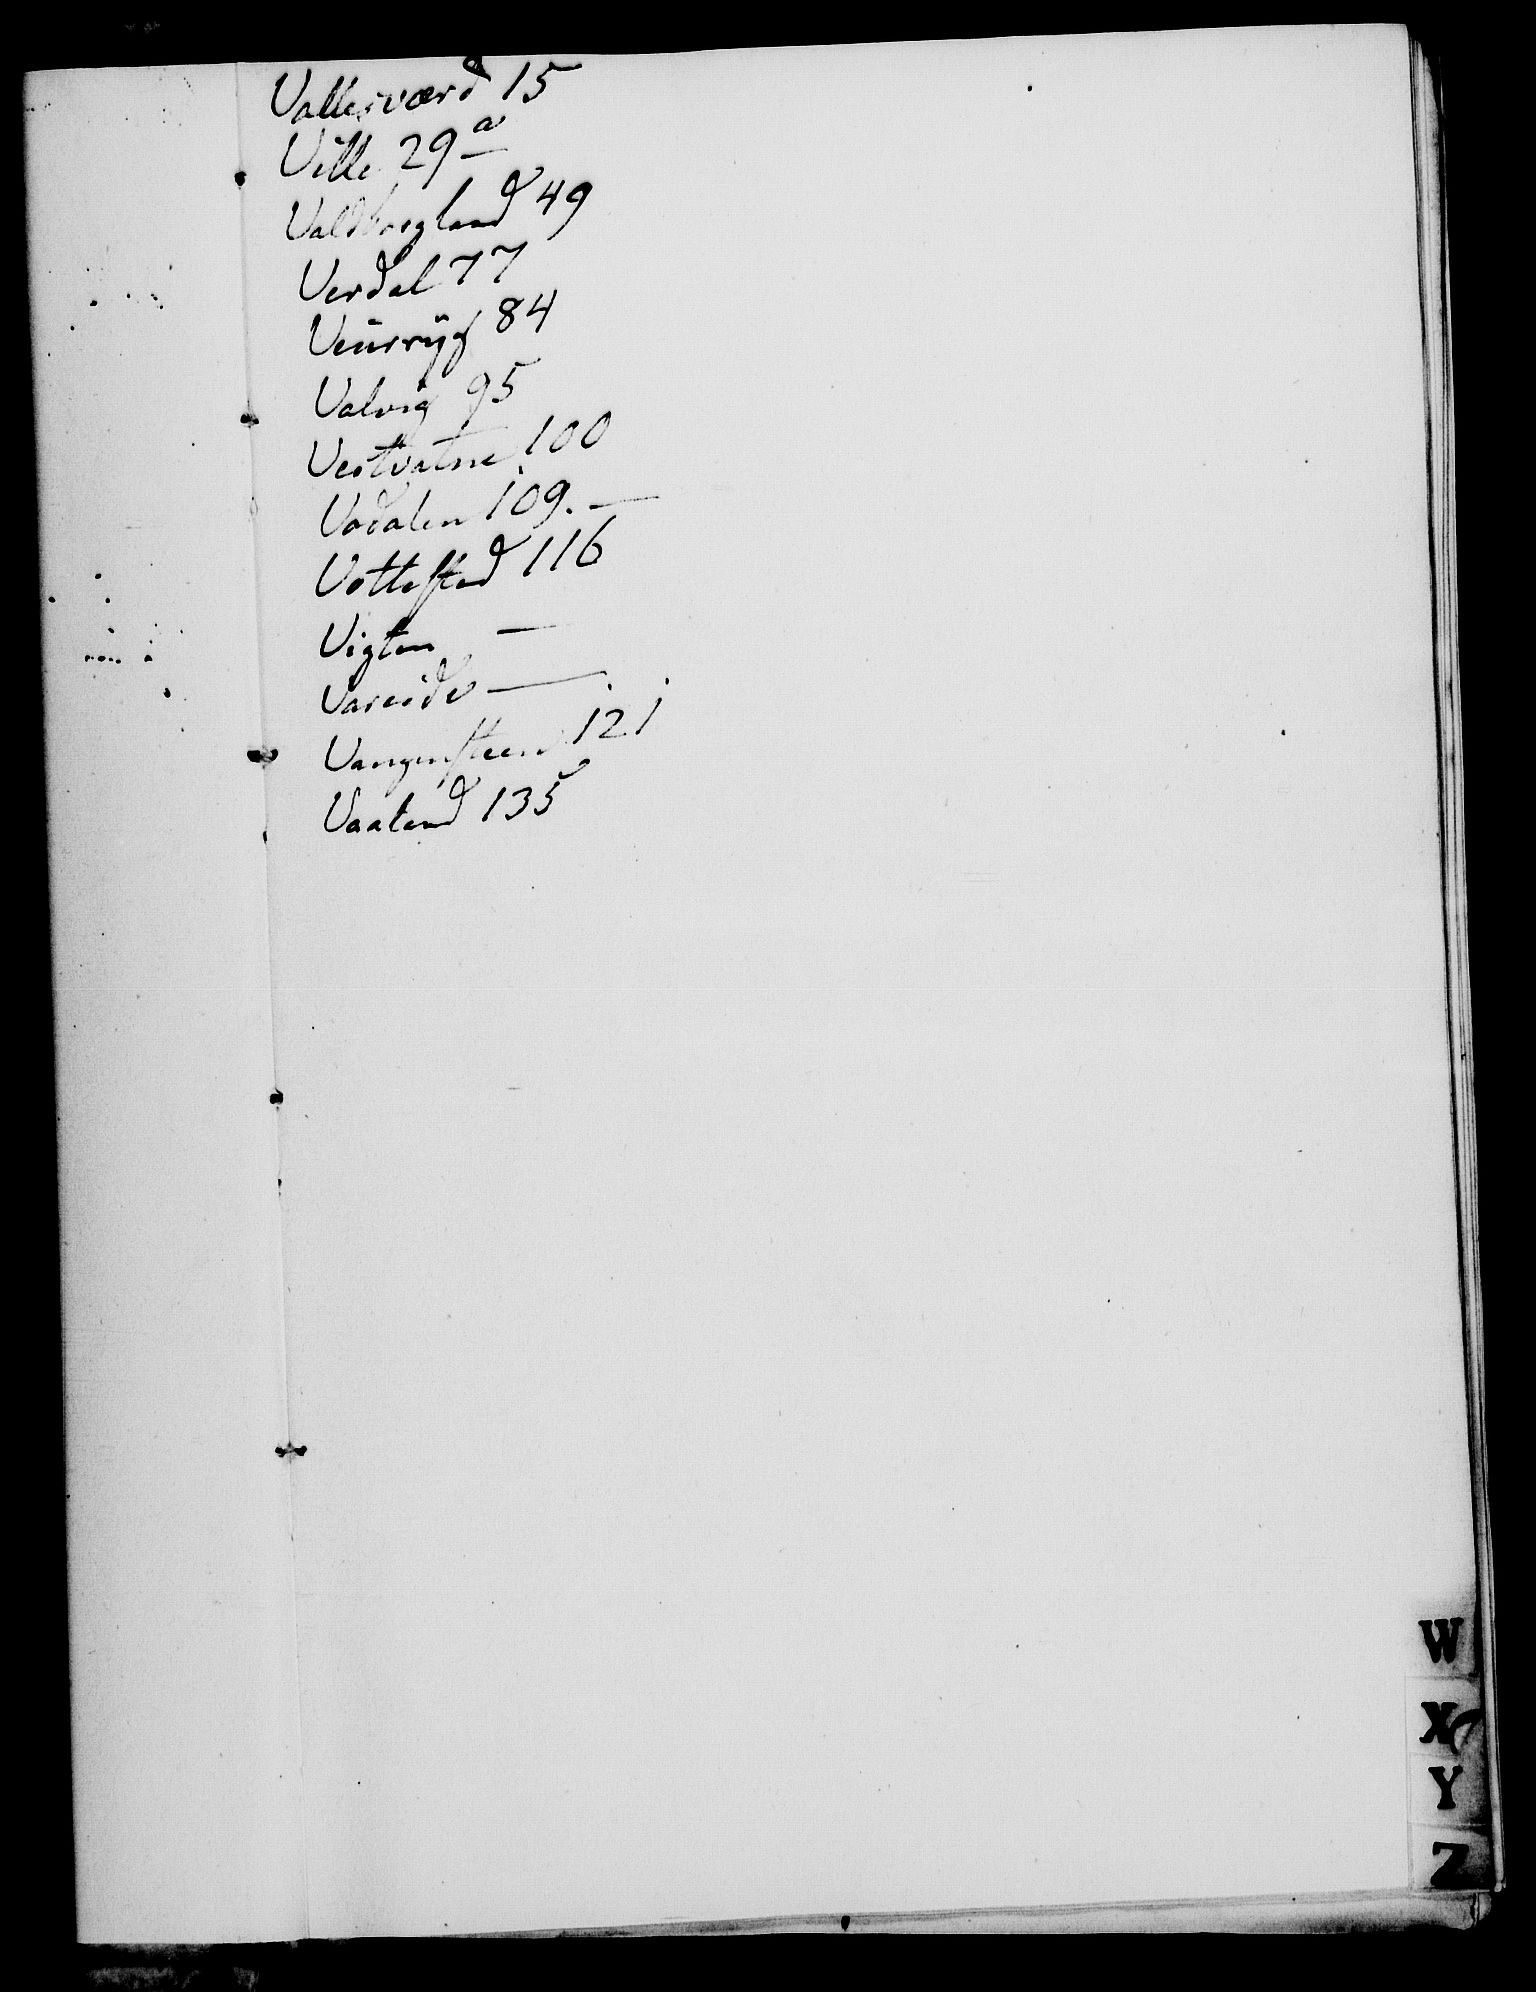 Vallesværd 15
Ville 29 a
Valdborgland 49
Verdal 77
84
Valvig 95
Vestvatne 100
Vadalen 109. —
Vottestad 116
Vigten —
Vareide —
Vangensteen 121
Vaaland 135
W
X
Y
Z